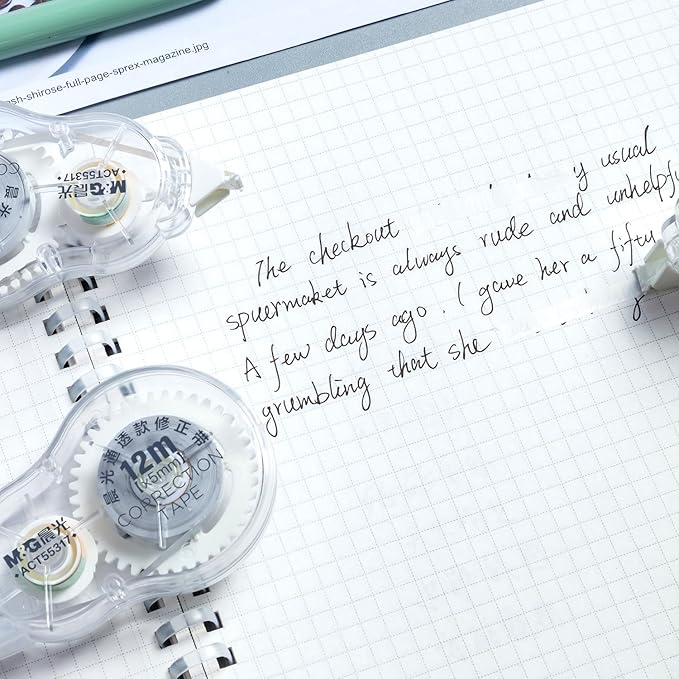 ash-shirose-full-page-sprex-magazine.jpg
M&G晨光
ACT55317
晨光
The checkout y usual
spuermaket is always rude and unhelpfu
A few days ago. I gave her a fifty
grumbling that she
晨光通透款修正带
12m
(x5mm)
CORRECTION
TAPE
M&G晨光
ACT55317